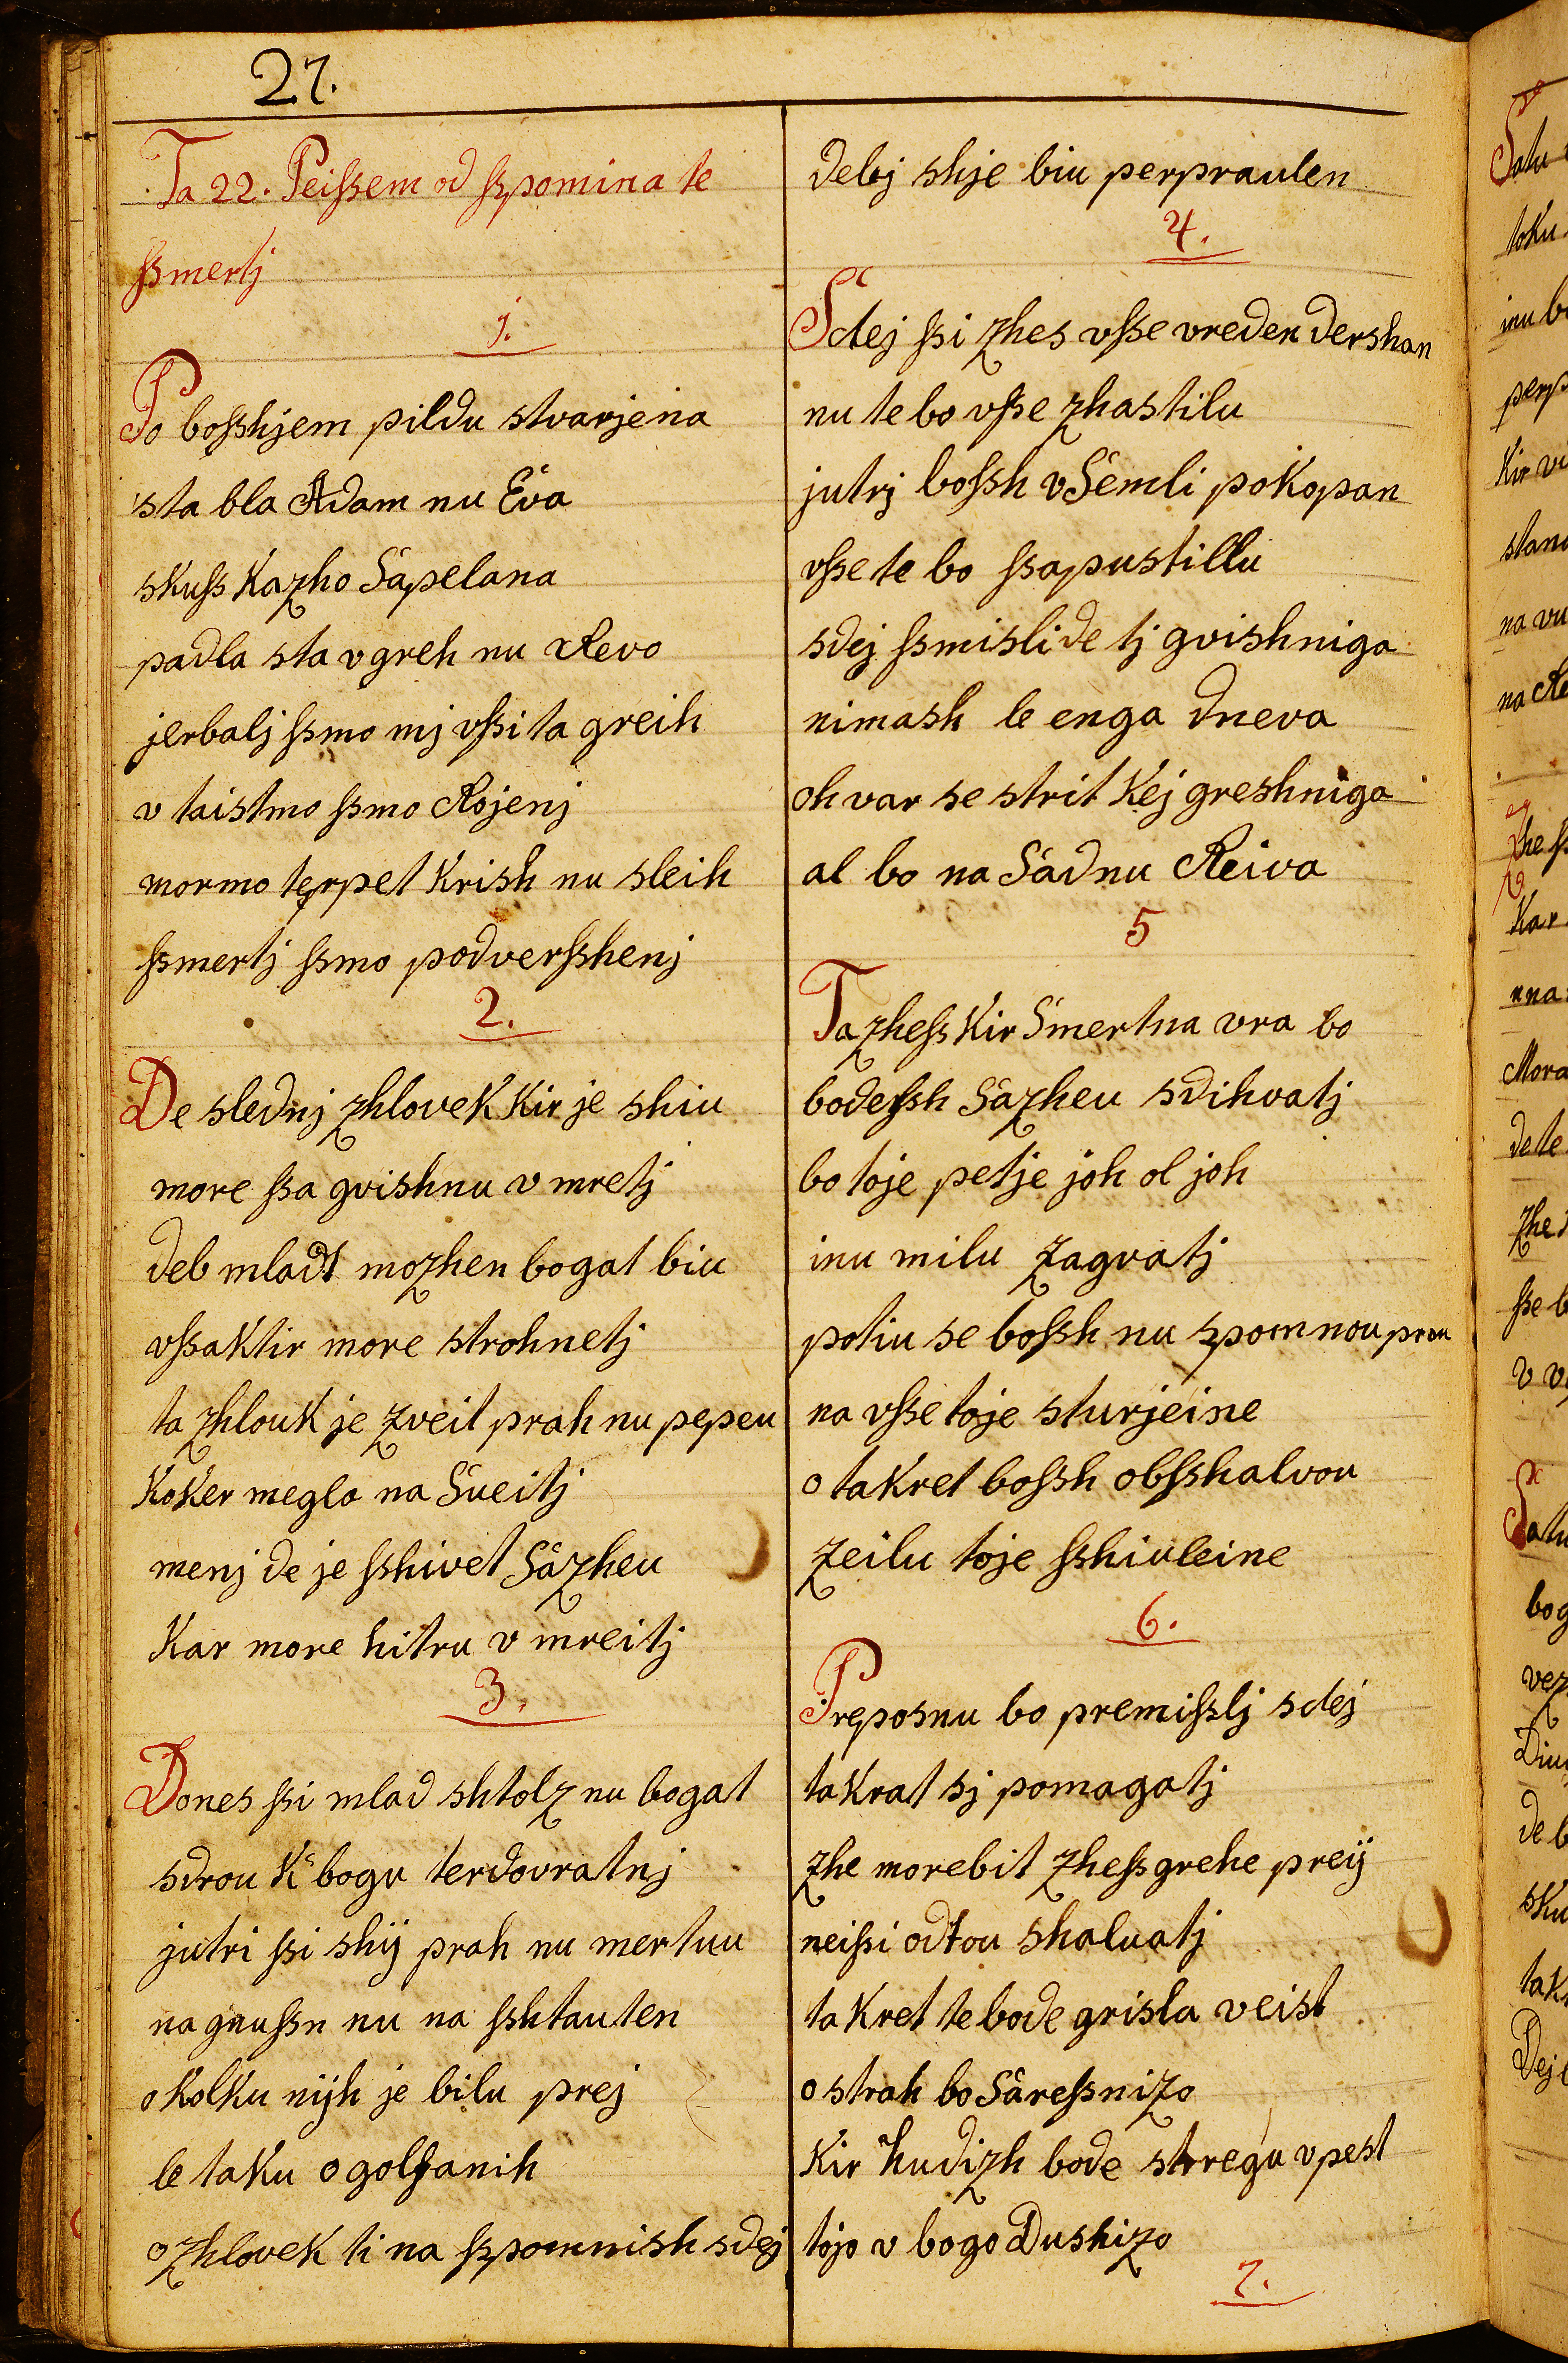 27.
Ta 22. Peißem od ßpomina te
ßmertj
1.
Po boſshjem pildu stvarjena
sta bla Adam nu Eva
skuß Kazho Sapelana
padla sta v greh nu Revo
jerbalj ßmo mj vßi ta greih
v taistmo ßmo Rojenj
mormo terpet Krish nu sleih
ßmertj ßmo podverßhenj
2.
De slednj zhlovek kir je shiu
more ßa gvishnu v mretj
deb mladt mozhen bogat biu
vßaktir more strohnetj
ta zhlouk je zveit prah nu pepeu
Koker megla na Sueitj
menj de je ßhivet Sazheu
Kar more hitru v mreitj
3.
Dones ßi mlad shtolz nu bogat
sdrou K bogu terdovratnj
jutri ßi shij prah nu mertuu
na gnußn nu na ßhtauten
o Kolku nijh je bilu prej
le taku ogolfanih
o zhlovek ti na ßpomnish sdej
delej shje biu perpraulen
4.
Sdej ßi zhes vße vreden dershan
nu te bo vße zhastilu
jutrj boßh v Semli pokopan
vße te bo ßapustillu
sdej ßmisli de tj gvishniga
nimash le enga dneva
oh var se strit Kej greshniga
al bo na Sadnu Reiva
5
Ta zheß Kir Smertna vra bo
bodeßh Sazheu sdihvatj
bo toje petje joh ol joh
inu milu zagvatj
potiu se boßh nu spomnou prou
na vße toje sturjeine
o takret boßh obßhalvou
zeilu toje ßhiuleine
6.
Preposnu bo premißlj sdej
takrat sj pomagatj
zhe morebit zheß grehe preij
neißi odtou shaluatj
takret te bode grisla veist
o strah bo Sareßnizo
Kir hudizh bode stregu v pest
tojo v bogo Dushizo
7.